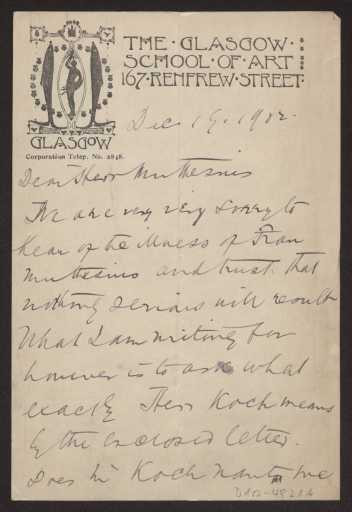 THE · GLASGOW ·
SCHOOL · OF · ART
167 · RENFREW · STREET ·
GLASGOW
Corporation Telep. No. 2848.
Dec. 19. 1902.
Dear Herr Muthesius
We are very very sorry to
hear of the illness of Frau
Muthesius and trust that
nothing serious will result
What I am writing for
however is to ask what
exactly Herr Koch means
by the enclosed letter.
Does Mr Koch want me